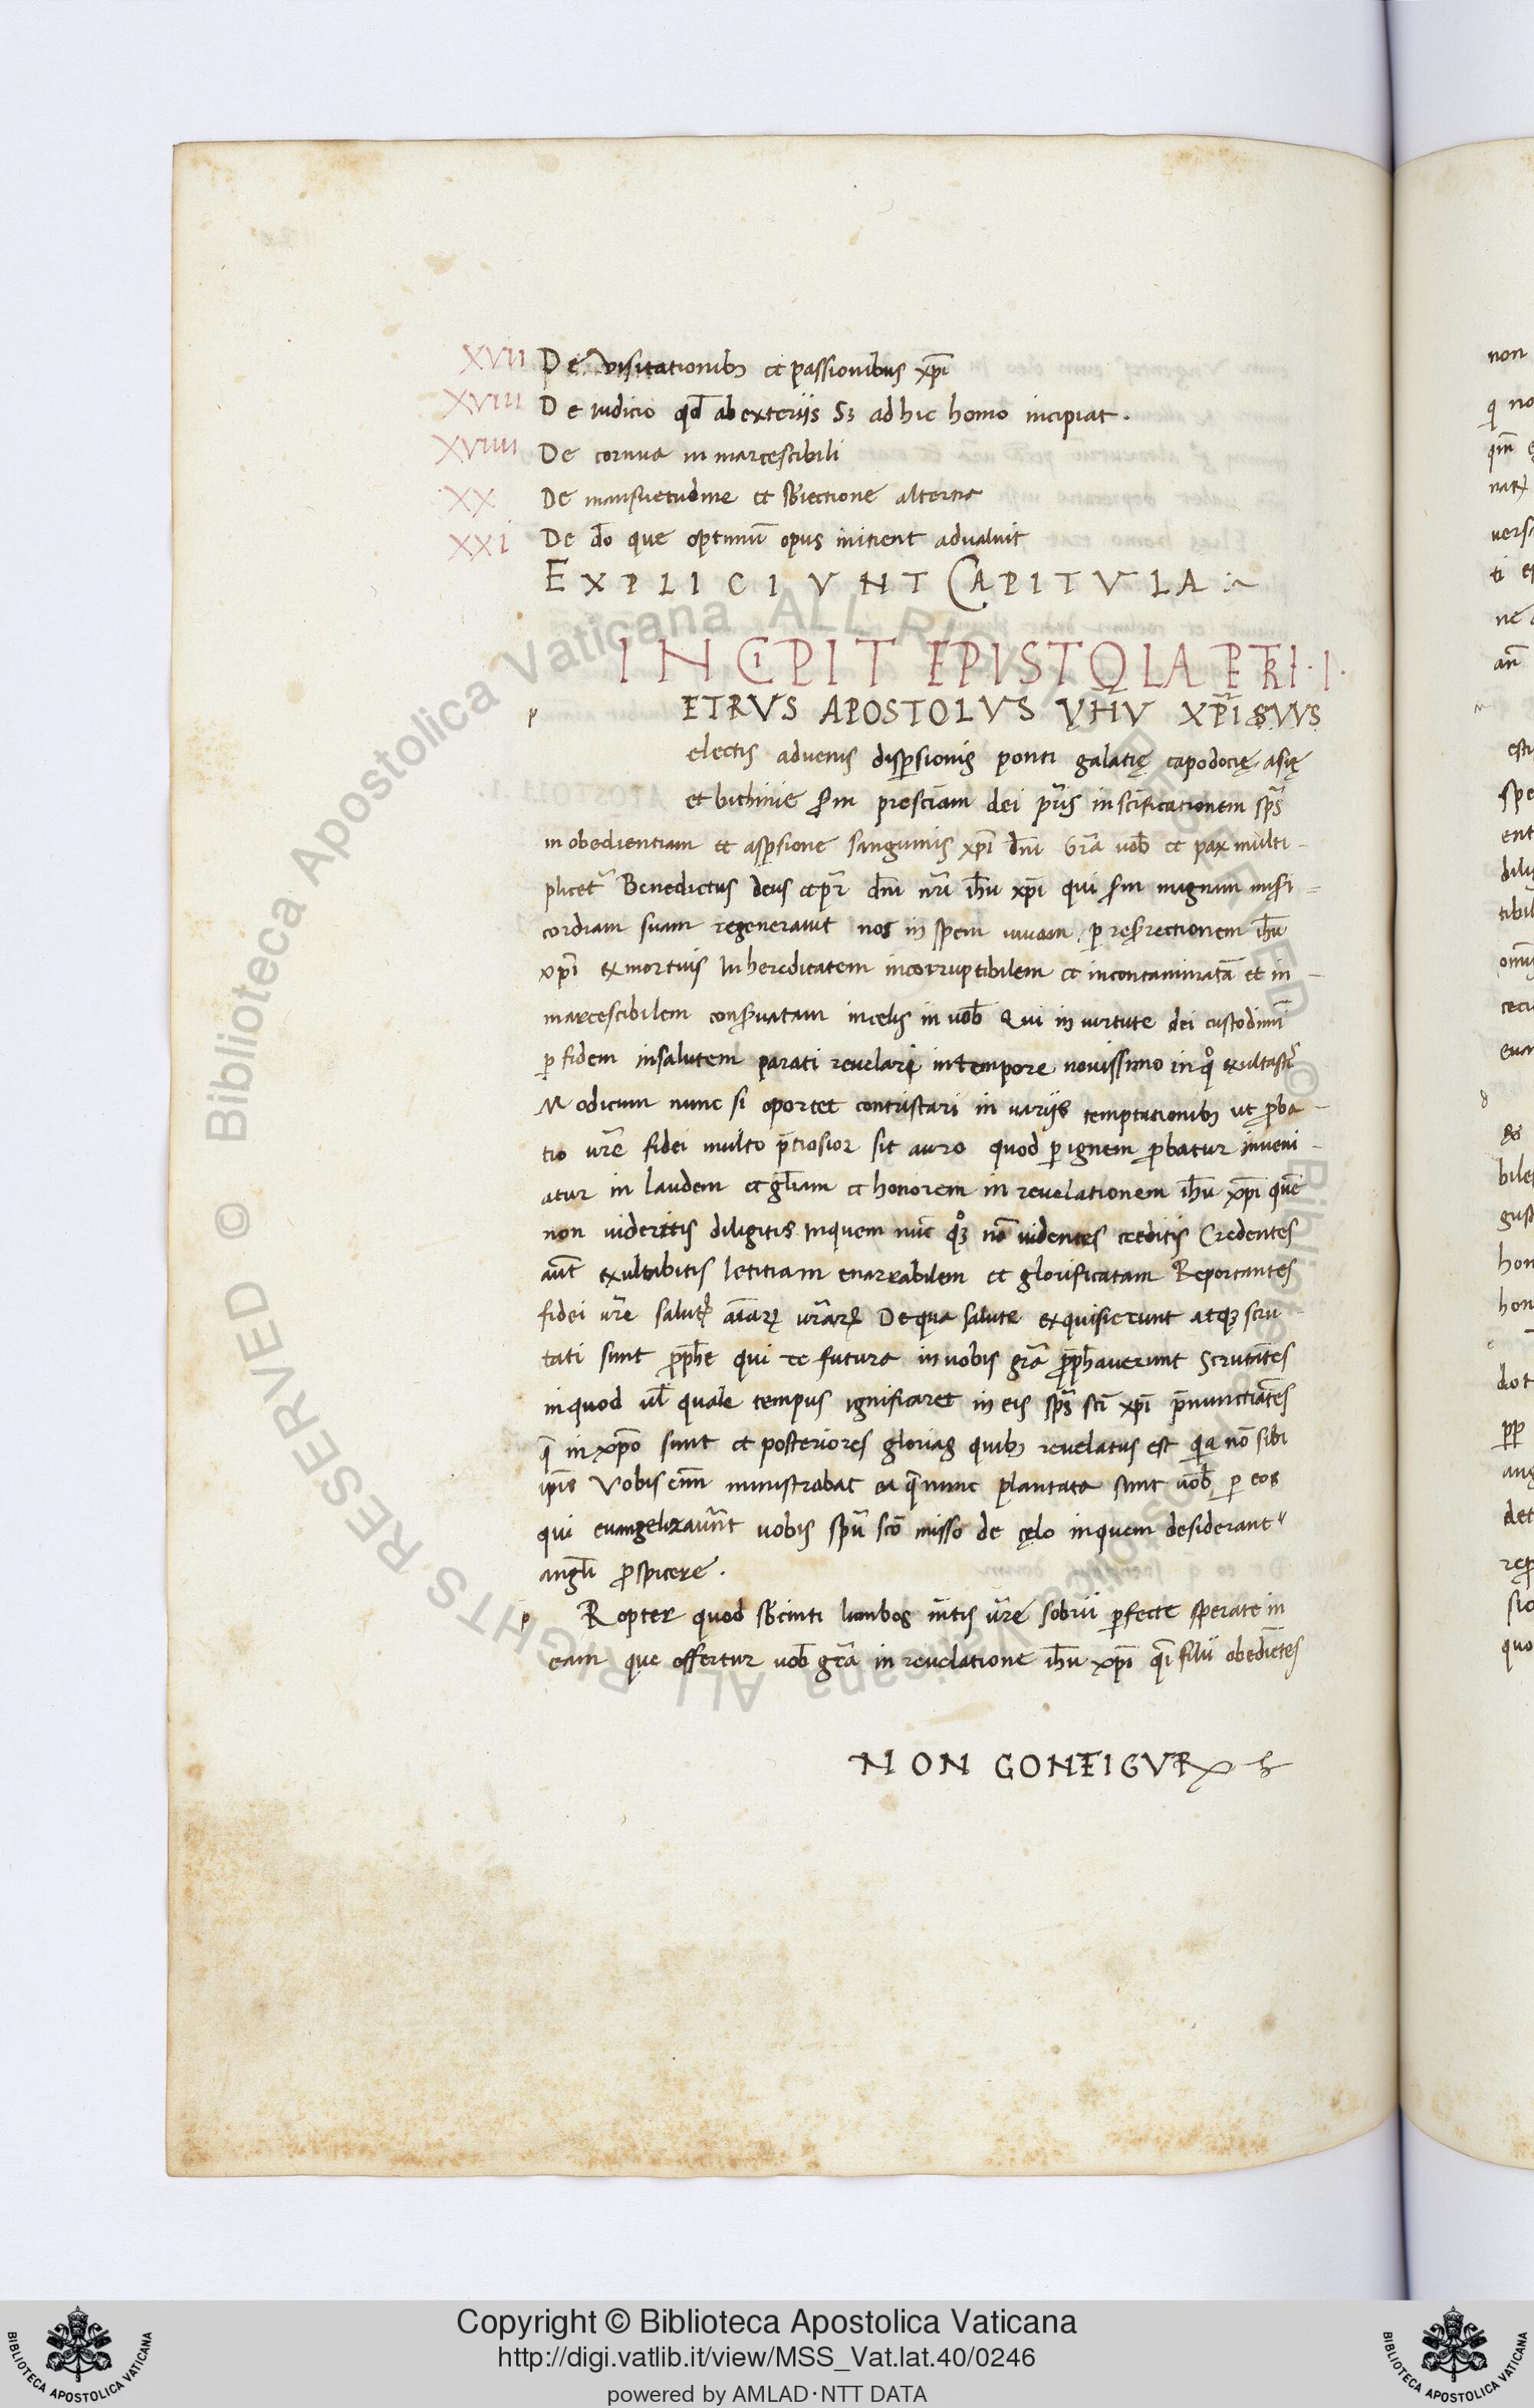 XVII De visitationibꝫ et passionibus xp̄i
XVIII De iudicio qd̄ ab exteriis Sꝫ ad hic homo incipiat.
XVIIII De cornua in marcescibili
XX De mansuetudine et sb̄iectione alterna
XXI De dō que optimū opus initient advaluit
EXPLICIVNT CAPITVLA
INCIPIT EPISTOLA PETRI · I ·
p ETRVS APOSTOLVS YHV XP̄I SVVS
electis aduenis disꝑsionis ponti galatię capodocię asię
et bithinie sm prescīam dei pr̄is in scīficationem sp̄s
in obedientiam et asꝑsione sanguinis xp̄i dn̄i Grā uob̄ et pax multi-
plicet᷑ Benedictus deus et pr̄ dn̄i nr̄i ih̄u xp̄i qui sm magnam misri=
cordiam suam regenerauit nos in spem uiuam ꝑ resrectionem ih̄u
xp̄i ex mortuis In hereditatem incorruptibilem et incontaminatā et in-
marcescibilem consruatam in celis in uob̄ Qui in uirtute dei custodimi
ꝑ fidem in salutem parati reuelari in tempore nouissimo in qͦ exultastis
Modicum nunc si oportet contristari in uariis temptationibꝫ ut ꝓba-
tio ur̄e fidei multo p̄tiosior sit auro quod ꝑ ignem ꝓbatur inueni-
atur in laudem et glīam et honorem in reuelationem ih̄u xp̄i quē
non uideritis diligitis In quem nūc qͦꝫ nō uidentes creditis Credentes
aūt exultabitis letitiam enarrabilem et glorificatam Reportantes
fidei ur̄e salutē aīaꝝ ur̄aꝝ De qua salute exquisierunt atqꝫ scru-
tati sunt ꝓph̄e qui te futura in uobis grā ꝓph̄auerunt Scrutātes
in quod ul̄ quale tempus ignificaret in eis sp̄s sc̄i xp̄i p̄nuncciātes
q̄ in xp̄o sunt et posteriores glorias quibꝫ reuelatus est quia nō sibi
ip̄is Vobis enim ministrabat ea q̄ nunc plantata sunt uob̄ ꝑ eos
qui euangelizauer̄t uobis spū scō misso de cęlo in quem desiderant
angl̄i ꝓspicere.
p Ropter quod sb̄cinti lumbos mētis ur̄e sobrii ꝑfecte sperate in
eam que offertur uob̄ gr̄a in reuelatione ih̄u xp̄i qi filii obediētes
NON CONFIGVR
Copyright © Biblioteca Apostolica Vaticana
http://digi.vatlib.it/view/MSS_Vat.lat.40/0246
powered by AMLAD·NTT DATA